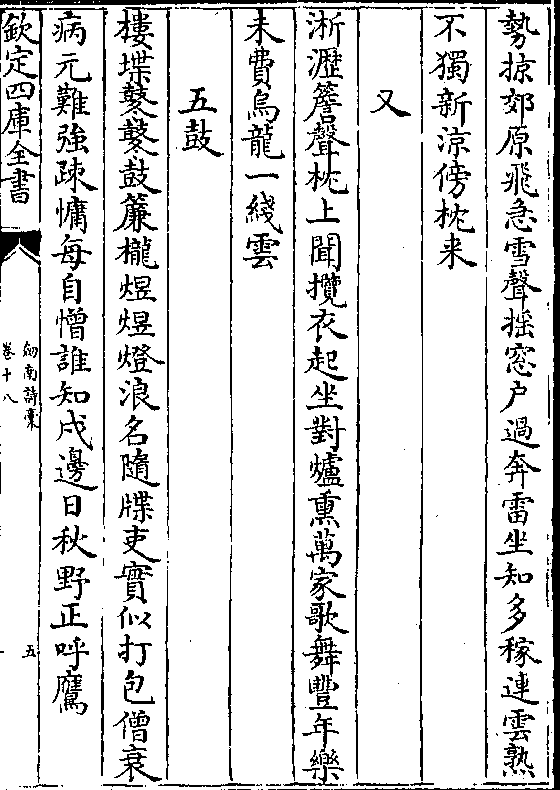 勢掠郊原飛急雪聲揺窓户過奔雷坐知多稼連雲熟
不獨新涼傍枕来
又
淅瀝簷聲枕上聞攬衣起坐對爐熏萬家歌舞豐年樂
未費烏龍一綫雲
五鼓
樓堞鼕鼕鼓簾櫳煜煜燈浪名隨牒吏實似打包僧衰
病元難強疎慵每自憎誰知戍邊日秋野正呼鷹
欽定四庫全書
劒南詩稾
卷十八
五